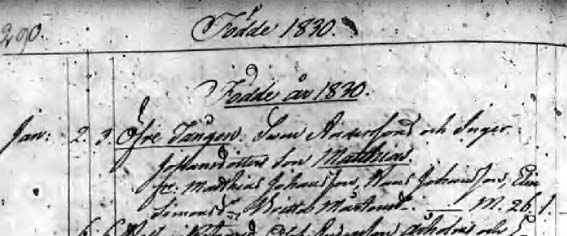 290. Födde 1830.
Födde år 1830.
Jan: 2. 3. Öfre Tången. Swen Andersons och Inger
Johansdotters Son Matthias.
fr: Matthias Johansson, Hans Johansson, Elin
Simonsd., Britta Mårtensd. M. 26. 1.
Anderson och